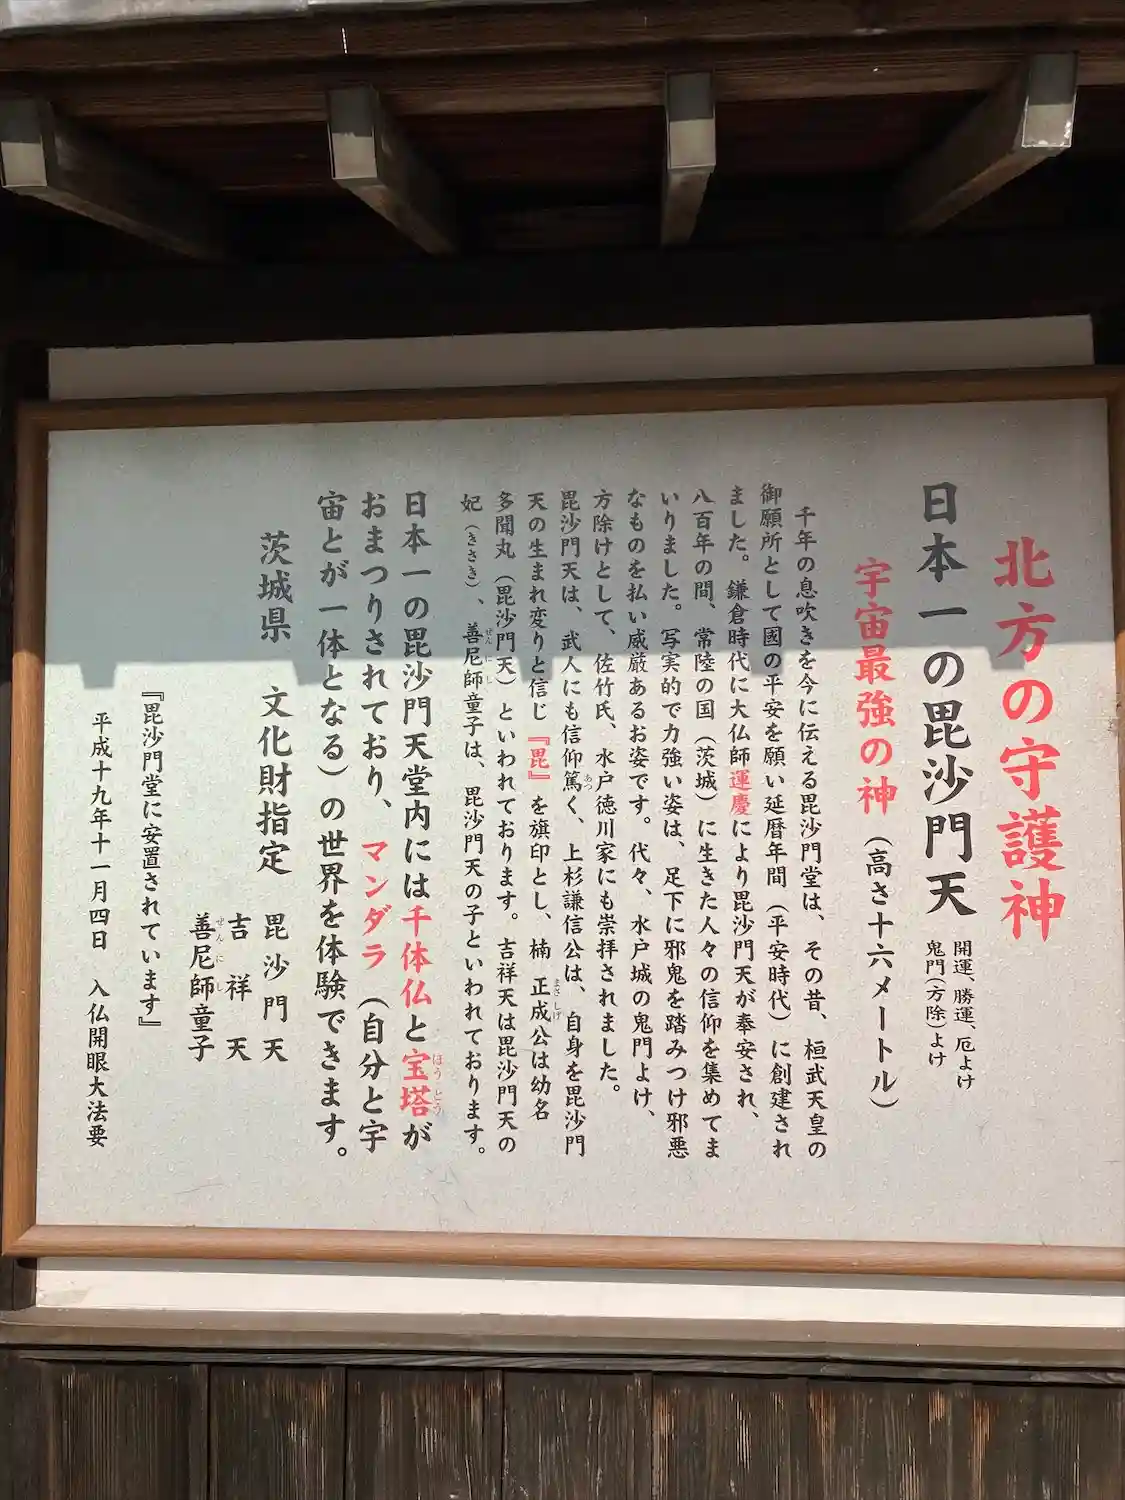 北方の守護神
日本一の毘沙門天
開運、勝運、厄よけ
鬼門(方除)よけ
宇宙最強の神(高さ十六メートル)
千年の息吹きを今に伝える毘沙門堂は、その昔、桓武天皇の
御願所として國の平安を願い延暦年間(平安時代)に創建され
ました。鎌倉時代に大仏師運慶により毘沙門天が奉安され、
八百年の間、常陸の国(茨城)に生きた人々の信仰を集めてま
いりました。写実的で力強い姿は、足下に邪鬼を踏みつけ邪悪
なものを払い威厳あるお姿です。代々、水戸城の鬼門よけ、
方除けとして、佐竹氏、水戸徳川家にも崇拝されました。
毘沙門天は、武人にも信仰篤く、上杉謙信公は、自身を毘沙門
あつ
天の生まれ変りと信じ『毘』を旗印とし、楠 正成公は幼名
まさしげ
多聞丸(毘沙門天)といわれております。吉祥天は毘沙門天の
妃(きさき)、善尼師童子は、毘沙門天の子といわれております。
ぜんにし
日本一の毘沙門天堂内には千体仏と宝塔が
ほうとう
おまつりされており、マンダラ(自分と宇
宙とが一体となる)の世界を体験できます。
茨城県 文化財指定 毘沙門天
吉祥天
善尼師童子
ぜんにし
『毘沙門堂に安置されています』
平成十九年十一月四日 入仏開眼大法要